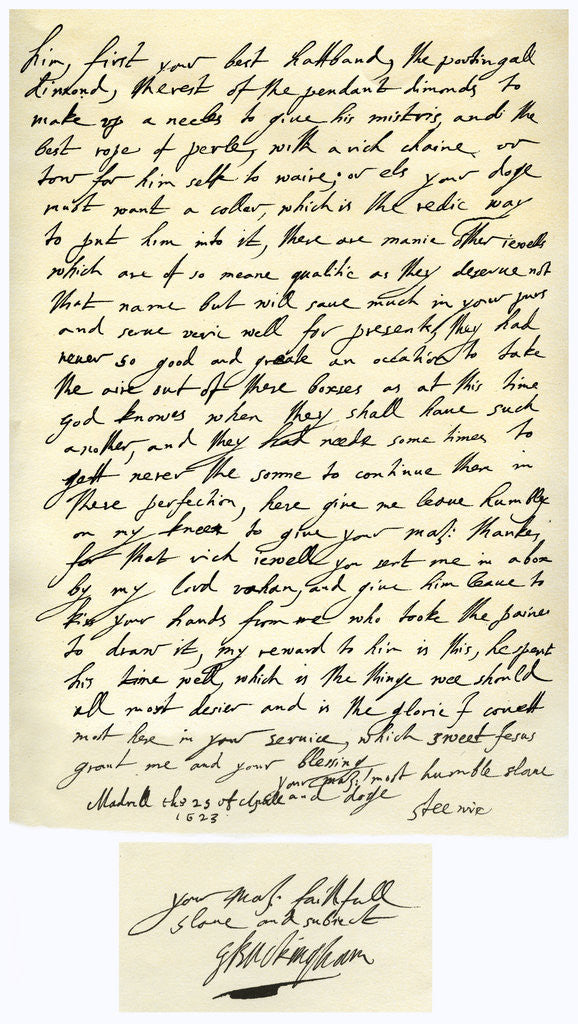 him, first your best hattband, the portingall
dimond, the rest of the pendant dimonds to
make up a necles to give his mistris, and the
best rope of perle, with a rich chaine or
tow for him self to waire, or els your doge
must want a coller, which is the redie way
to put him into it, there are manie other iewells
which are of so meane qualitie as they deserve not
that name but will save much in your purs
and serve verie well for presents, they had
never so good and greate an occation to take
the aire out of there boxses as at this time
god knowes when they shall have such
another, and they had neede some times to
gett nerer the sonne to continue them in
there perfection, here give me leave humbly
on my knees to give your maj: thankes
for that rich iewell you sent me in a box
by my lord vahan, and give him leave to
kiss your hands from me who tooke the paines
to draw it, my reward to him is this, he spent
his time well, which is the thinge wee should
all most desier and is the glorie I covett
most here in your service, which sweet Jesus
grant me and your blessing
your maj: most humble slave
Madrill the 25 of Aprill and doge
1623 Steenie
your maj. faithfull
slave and subiect
GBuckingham